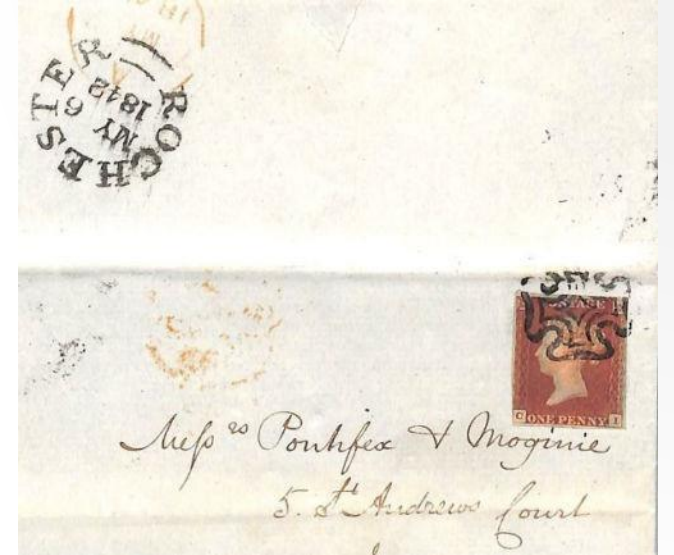 ROCHESTER
MY 6
1842
POSTAGE
C ONE PENNY I
Mess rs Pontifex & Moginie
5. St Andrews Court